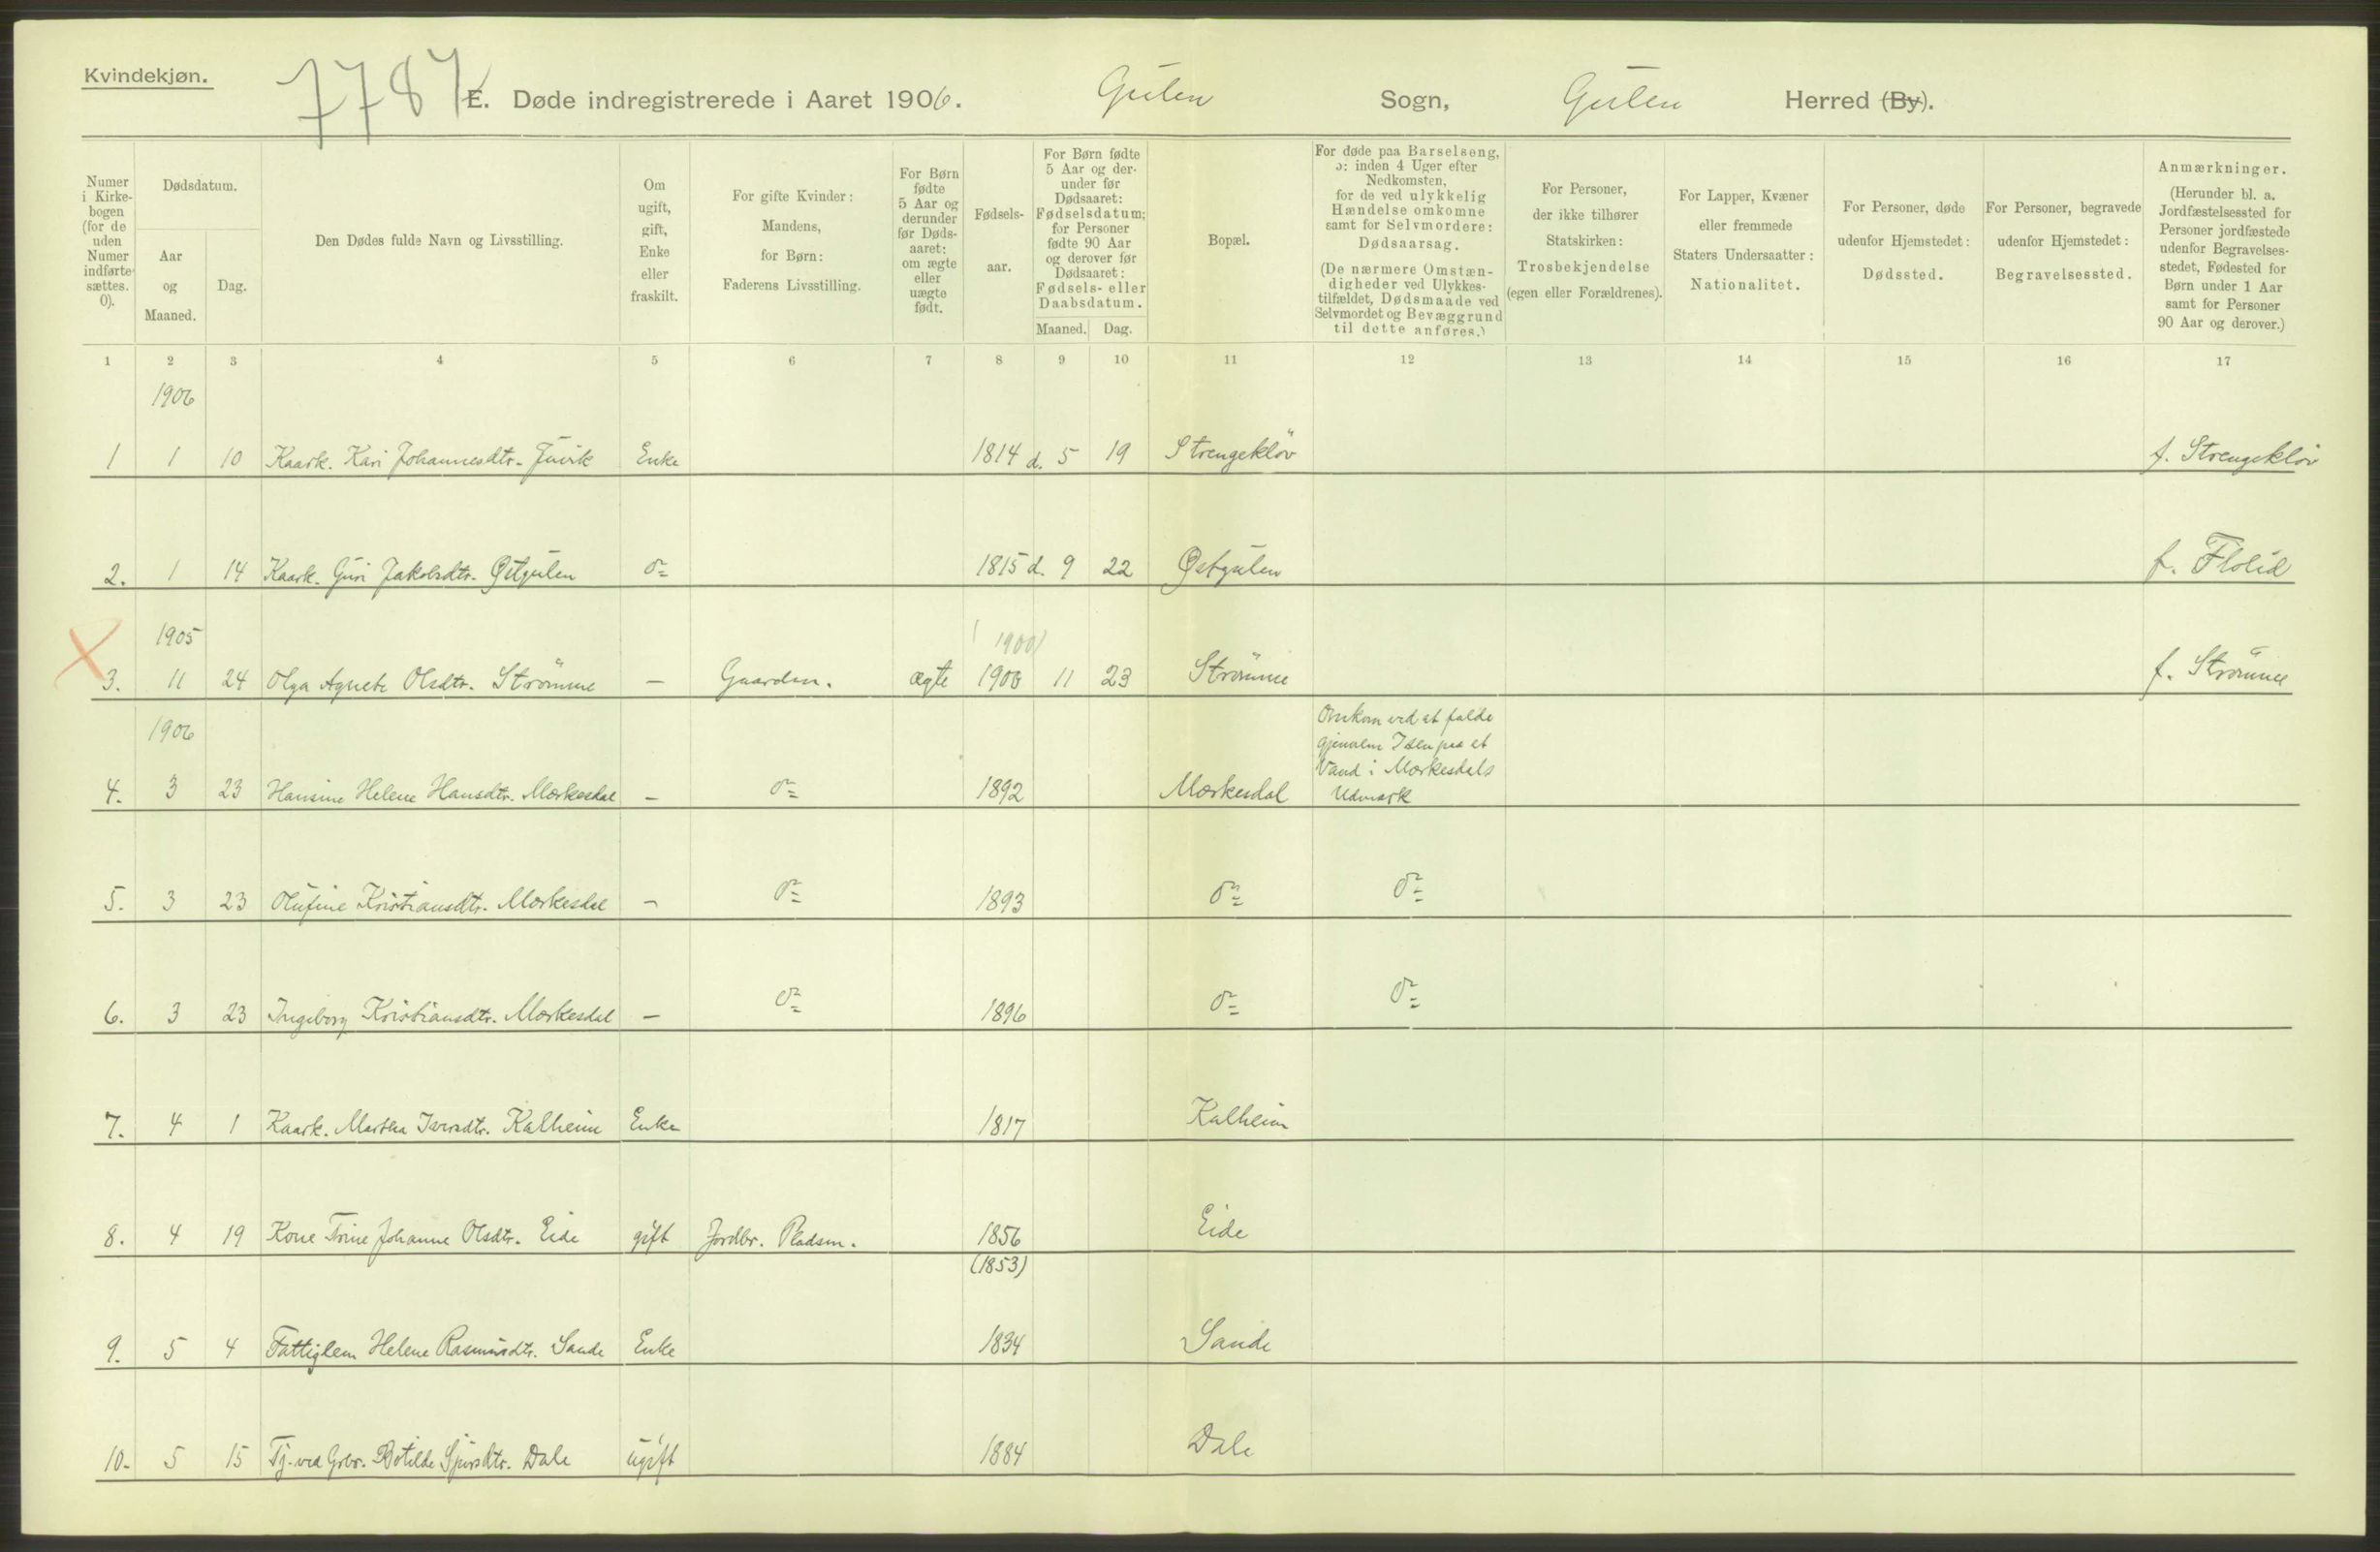 Kvindekjøn.
7787
E. Døde indregistrerede i Aaret 1906. Gulen Sogn, Gulen Herred (By).
Numer
i Kirke-
bogen
(for de
uden
Numer
indførte
sættes.
0).
Dødsdatum.
Aar
og
Maaned.
Dag.
Den Dødes fulde Navn og Livsstilling.
Om
ugift,
gift,
Enke
eller
fraskilt.
For gifte Kvinder:
Mandens,
for Børn:
Faderens Livsstilling.
For Børn
fødte
5 Aar og
derunder
før Døds-
aaret:
om ægte
eller
uægte
født.
Fødsels-
aar.
For Børn fødte
5 Aar og der-
under før
Dødsaaret:
Fødselsdatum;
for Personer
fødte 90 Aar
og derover før
Dødsaaret:
Fødsels- eller
Daabsdatum.
Maaned. Dag.
Bopæl.
For døde paa Barselseng,
ɔ: inden 4 Uger efter
Nedkomsten,
for de ved ulykkelig
Hændelse omkomne
samt for Selvmordere:
Dødsaarsag.
(De nærmere Omstæn-
digheder ved Ulykkes-
tilfældet, Dødsmaade ved
Selvmordet og Bevæggrund
til dette anføres.)
For Personer,
der ikke tilhører
Statskirken:
Trosbekjendelse
(egen eller Forældrenes).
For Lapper, Kvæner
eller fremmede
Staters Undersaatter:
Nationalitet.
For Personer, døde
udenfor Hjemstedet:
Dødssted.
For Personer, begravede
udenfor Hjemstedet:
Begravelsessted.
Anmærkninger.
(Herunder bl. a.
Jordfæstelsessted for
Personer jordfæstede
udenfor Begravelses-
stedet, Fødested for
Børn under 1 Aar
samt for Personer
90 Aar og derover.)
1 2 3 4 5 6 7 8 9 10 11 12 13 14 15 16 17
1906
1 1 10 Kaark. Kari Johannesdtr. Juvik Enke 1814 d. 5 19 Strengekløv f. Strengekløv
2. 1 14 Kaark. Guri Jakobsdtr. Østgulen do 1815 d. 9 22 Østgulen f. Flolid
1905
(1900)
3. 11 24 Olga Agnete Olsdtr. Strømme — Gaardm. ægte 1900 11 23 Strømme f. Strømme
1906
Omkom ved at falde
gjennem Isen paa et
Vand i Mørkesdals
Udmark
4. 3 23 Hansine Helene Hansdtr. Mørkesdal — do 1892 Mørkesdal
5. 3 23 Olufine Kristiansdtr. Mørkesdal — do 1893 do do
6. 3 23 Ingeborg Kristiansdtr. Mørkesdal — do 1896 do do
7. 4 1 Kaark. Martha Iversdtr. Kalheim Enke 1817 Kalheim
8. 4 19 Kone Trine Johanne Olsdtr. Eide gift Jordbr. Pladsm. 1856 Eide
(1853)
9. 5 4 Fattiglem Helene Rasmusdtr. Sande Enke 1834 Sande
10. 5 15 Tj. ved Grbr. Botilde Sjursdtr. Dale ugift 1884 Dale